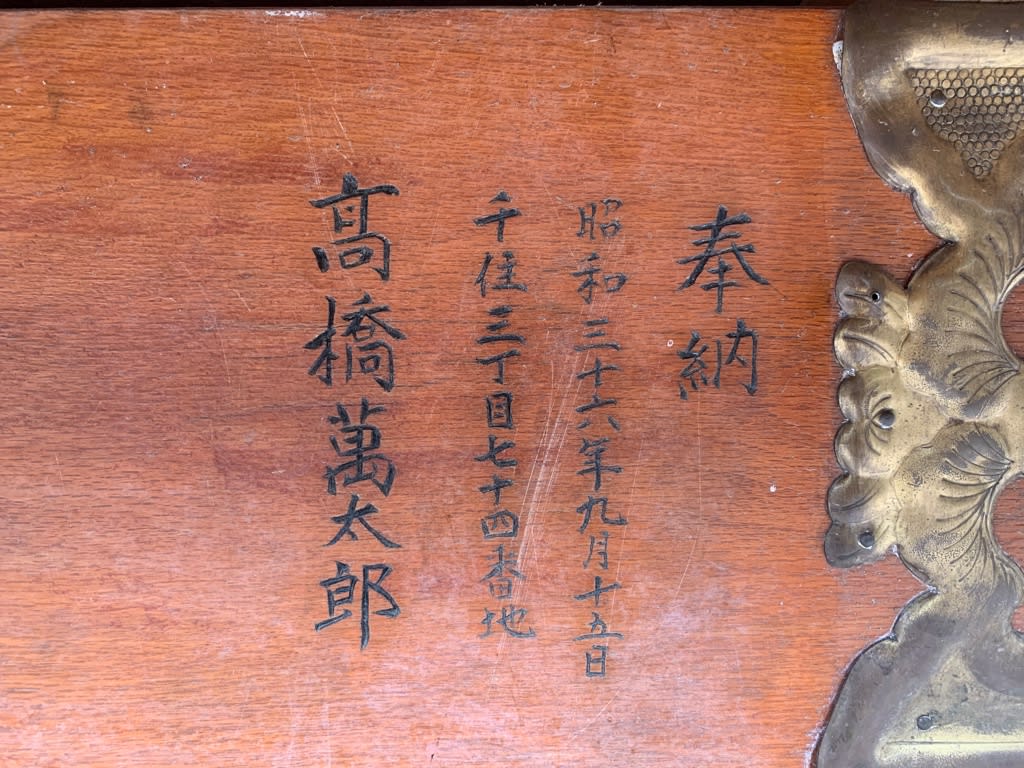 奉納
昭和三十六年九月十五日
千住三丁目七十四番地
髙橋萬太郎